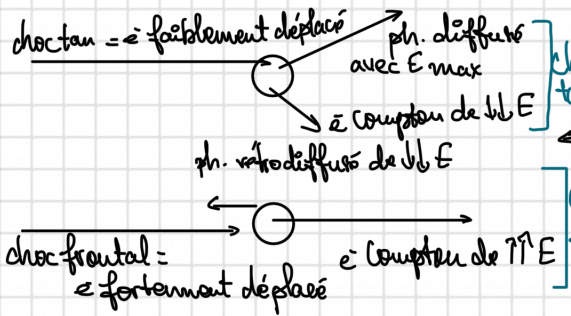 choc tan = é faiblement déplacé
ph. diffusé
avec E max
é compton de ↓↓ E
ph. rétrodiffusé de ↓↓ E
choc frontal =
é fortement déplacé
é Compton de ↑↑ E